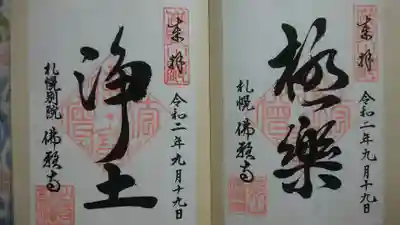 令和二年九月十九日
極樂
札幌 佛願寺
令和二年九月十九日
浄土
札幌別院 佛願寺